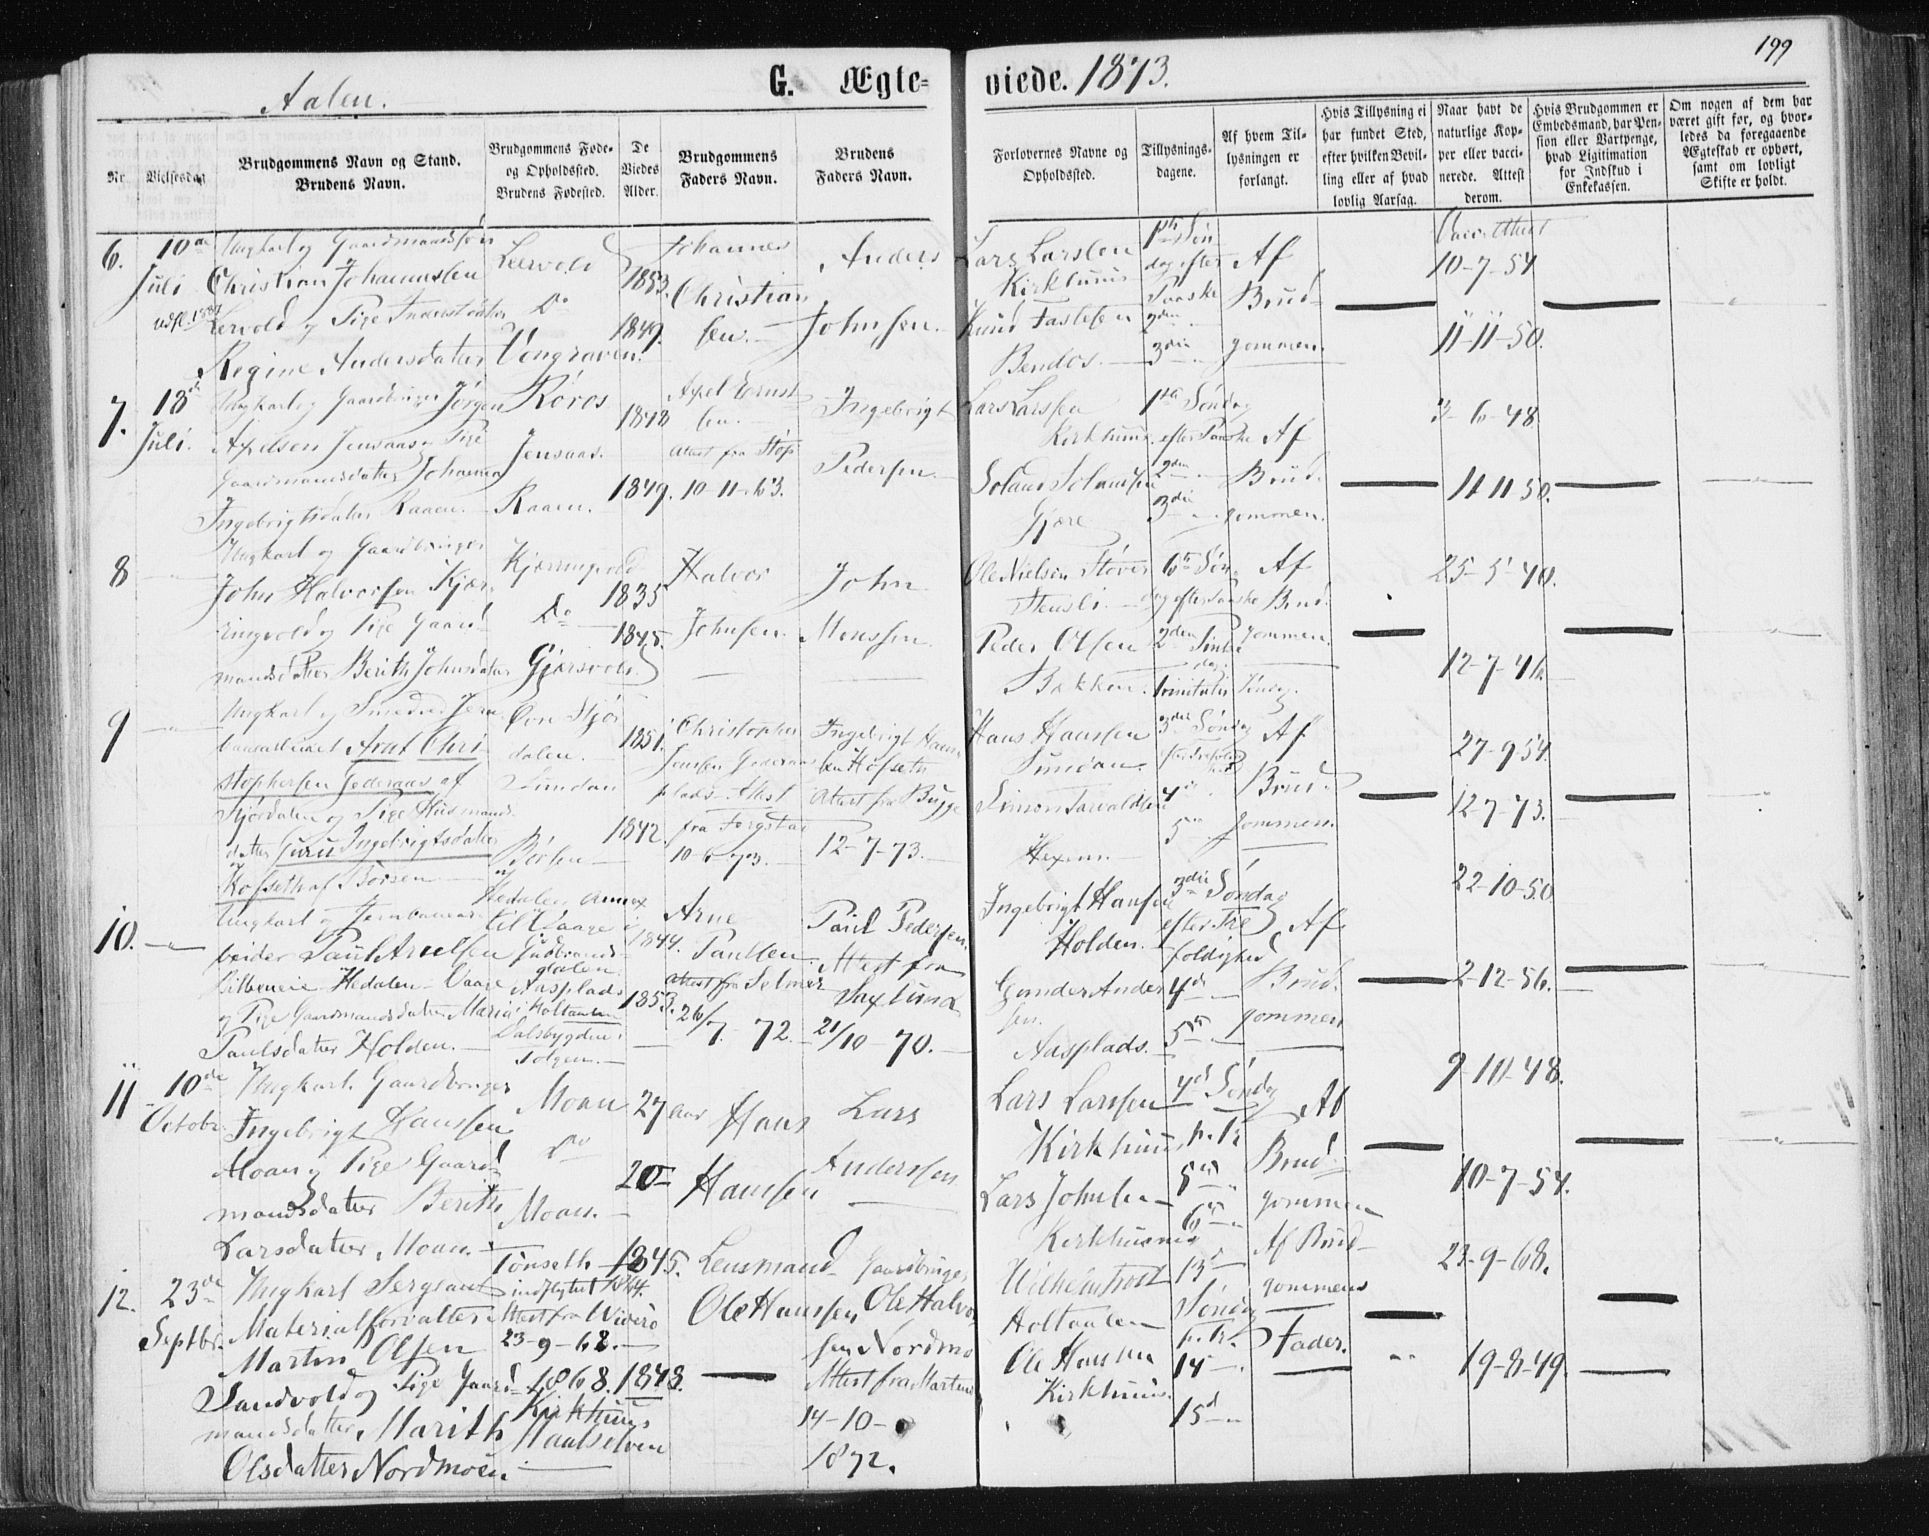 199
Aalen.
G. Ægte-
viede. 1873.
Nr.
Vielsesdag
Brudgommens Navn og Stand.
Brudens Navn.
Brudgommens Føde-
og Opholdssted.
Brudens Fødested.
De
Viedes
Alder.
Brudgommens
Faders Navn.
Brudens
Faders Navn.
Forlovernes Navne og
Opholdssted.
Tillysnings-
dagene.
Af hvem Til-
lysningen er
forlangt.
Hvis Tillysning ei
har fundet Sted,
efter hvilken Bevil-
ling eller af hvad
lovlig Aarsag.
Naar havt de
naturlige Kop-
per eller vacci-
nerede. Attest
derom.
Hvis Brudgommen er
Embedsmand, har Pen-
sion eller Vartpenge,
hvad Legitimation
for Indskud i
Enkekassen.
Om nogen af dem har
været gift før, og hvor-
ledes da foregaaende
Ægteskab er ophørt,
samt om lovligt
Skifte er holdt.
6.
10de
Juli
Ungkarl og Gaardmandssøn
Christian Johannessen
Lervold og Pige
Regine Andersdatter
Lervold
Do
Vongraven
1853.
1849.
Johannes
Christian
sen.
Anders
Johnsen.
Lars Larssen
Kirkhuus
Knud
Bendos.
1ste Søn
dag efter
Paaske
2den
3die
Af
Brud-
gommen.
10-7-54
11-11-50.
7.
18de
Juli.
Ungkarl og Gaardbruger Jørgen
Axelsen Jensaas, Pige
Gaardmandsdatter Johanna
Ingebrigtsdatter Raaen.
Røros
Jensaas.
Raaen.
1848
1849.
Axel Ernst
sen.
Attest fra
10-11-63.
Ingebrigt
Pedersen.
Lars Larssen
Kirkhuus.
Gjøre
1ste Søndag
efter Paaske
2den
3die
Af
Brud-
gommen.
3-6-48.
11 11 50.
8
Ungkarl og Gaardbruger
John Halvorsen Kjær
ringvold og Pige Gaard
mandsdatter Berith Johnsdatter
Kjærringvold
Do
Gjærsvold
1835
1845.
Halvor
Johnsen.
John
Monssen.
Ole Nielsen
Stensli.
Peder Olsen
Bakken.
6te Søn
dag efter Paaske
2den Pintse
dag.
Trinitatis
Af
Brud-
gommen.
25-5-40.
12-7-46
9
Ungkarl og Smed
Arnt Chri
stophersen Goderaas af
Stjørdalen og Pige Husmands
datter Guru Ingebrigtsdatter
Hofseth af Børsen
Øvre Stjør
dalen.
Sundan
Børsen
1851.
1842.
Christopher
Jensen Goderaas
plads Attest
fra
10-6-73.
Ingebrigt Hans
sen Hofseth
Attest fra Bugge
12-7-73.
Hans Hanssen
Sundan.
Simon
Hexem
3die Søndag
4de
5te
Af
Brud-
gommen.
27-9-54.
12-7-73.
10.
Ungkarl og Jernbanear
beider Paul Arnesen
Hedalen Vaage
og Pige Gaardmandsdatter Maria
Paulsdatter Holden.
Hedalen Annex
til Vaage i
Gudbrands-
dalen.
Aasplads
Holtaalen
Dalsbygden i
1844.
1853.
Arne
Paulsen.
Attest fra Selmer
26/7. 72.
Paul Pedersen.
Attest fra
Saxlund
21/10 - 70.
Ingebrigt Hansen
Holden.
Gunder Ander
sen.
Aasplads.
3die Søndag
efter Tre
foldighed
4de
5te
Af
Brud-
gommen
22-10-50
2-12-56.
11
10de
Octobr.
Ungkarl. Gaardbruger
Ingebrigt Hanssen
Moan og Pige Gaard
mandsdatter Berith
Larsdatter Moan.
Moan
Do
Moan.
27 Aar
20
Hans
Hanssen
Lars
Anderssen.
Lars Larssen
Kirkhuus
Lars Johnsen
Kirkhuus
4de Søndag
p. Tr.
5te
6te
Af
Brud-
gommen
9-10-48.
10-7-54.
12.
23de
Septbr.
Ungkarl Sergeant
Materialforvalter
Martin Olsen
Sandvold og Pige Gaard-
mandsdatter Marith
Olsdatter Nordmoen
Tønseth
indflyttet 1864.
Attest fra
23-9-68.
1868.
Kirkhuus
Maalselven
1845.
1848.
Lensmand
Ole Hanssen
Gaardbruger
Ole Halvor
sen Nordmo
Attest fra
14-10-
1872.
Holtaalen
Ole Hanssen
Kirkhuus.
13d
Søndag
p. Tr.
14
15d
Af Brud-
gommens
Fader.
23-9-68.
19-8-49.